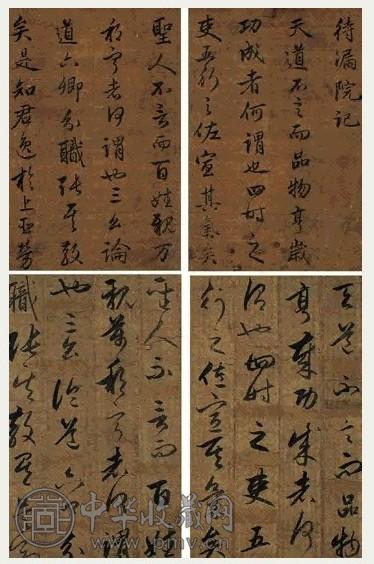 待漏院記
天道不言而品物亨歲
功成者何謂也四時之
吏五行之佐宣其氣矣
聖人不言而百姓親万
邦寧者何謂也三公論
道六卿分職張其教
矣是知君逸於上臣勞
天道不言而品物
亨歲功成者何
謂也四時之吏五
行之佐宣其氣矣
聖人不言而百姓
親萬邦寧者何謂
也三公論道六卿分
職張其教矣
中华收藏网